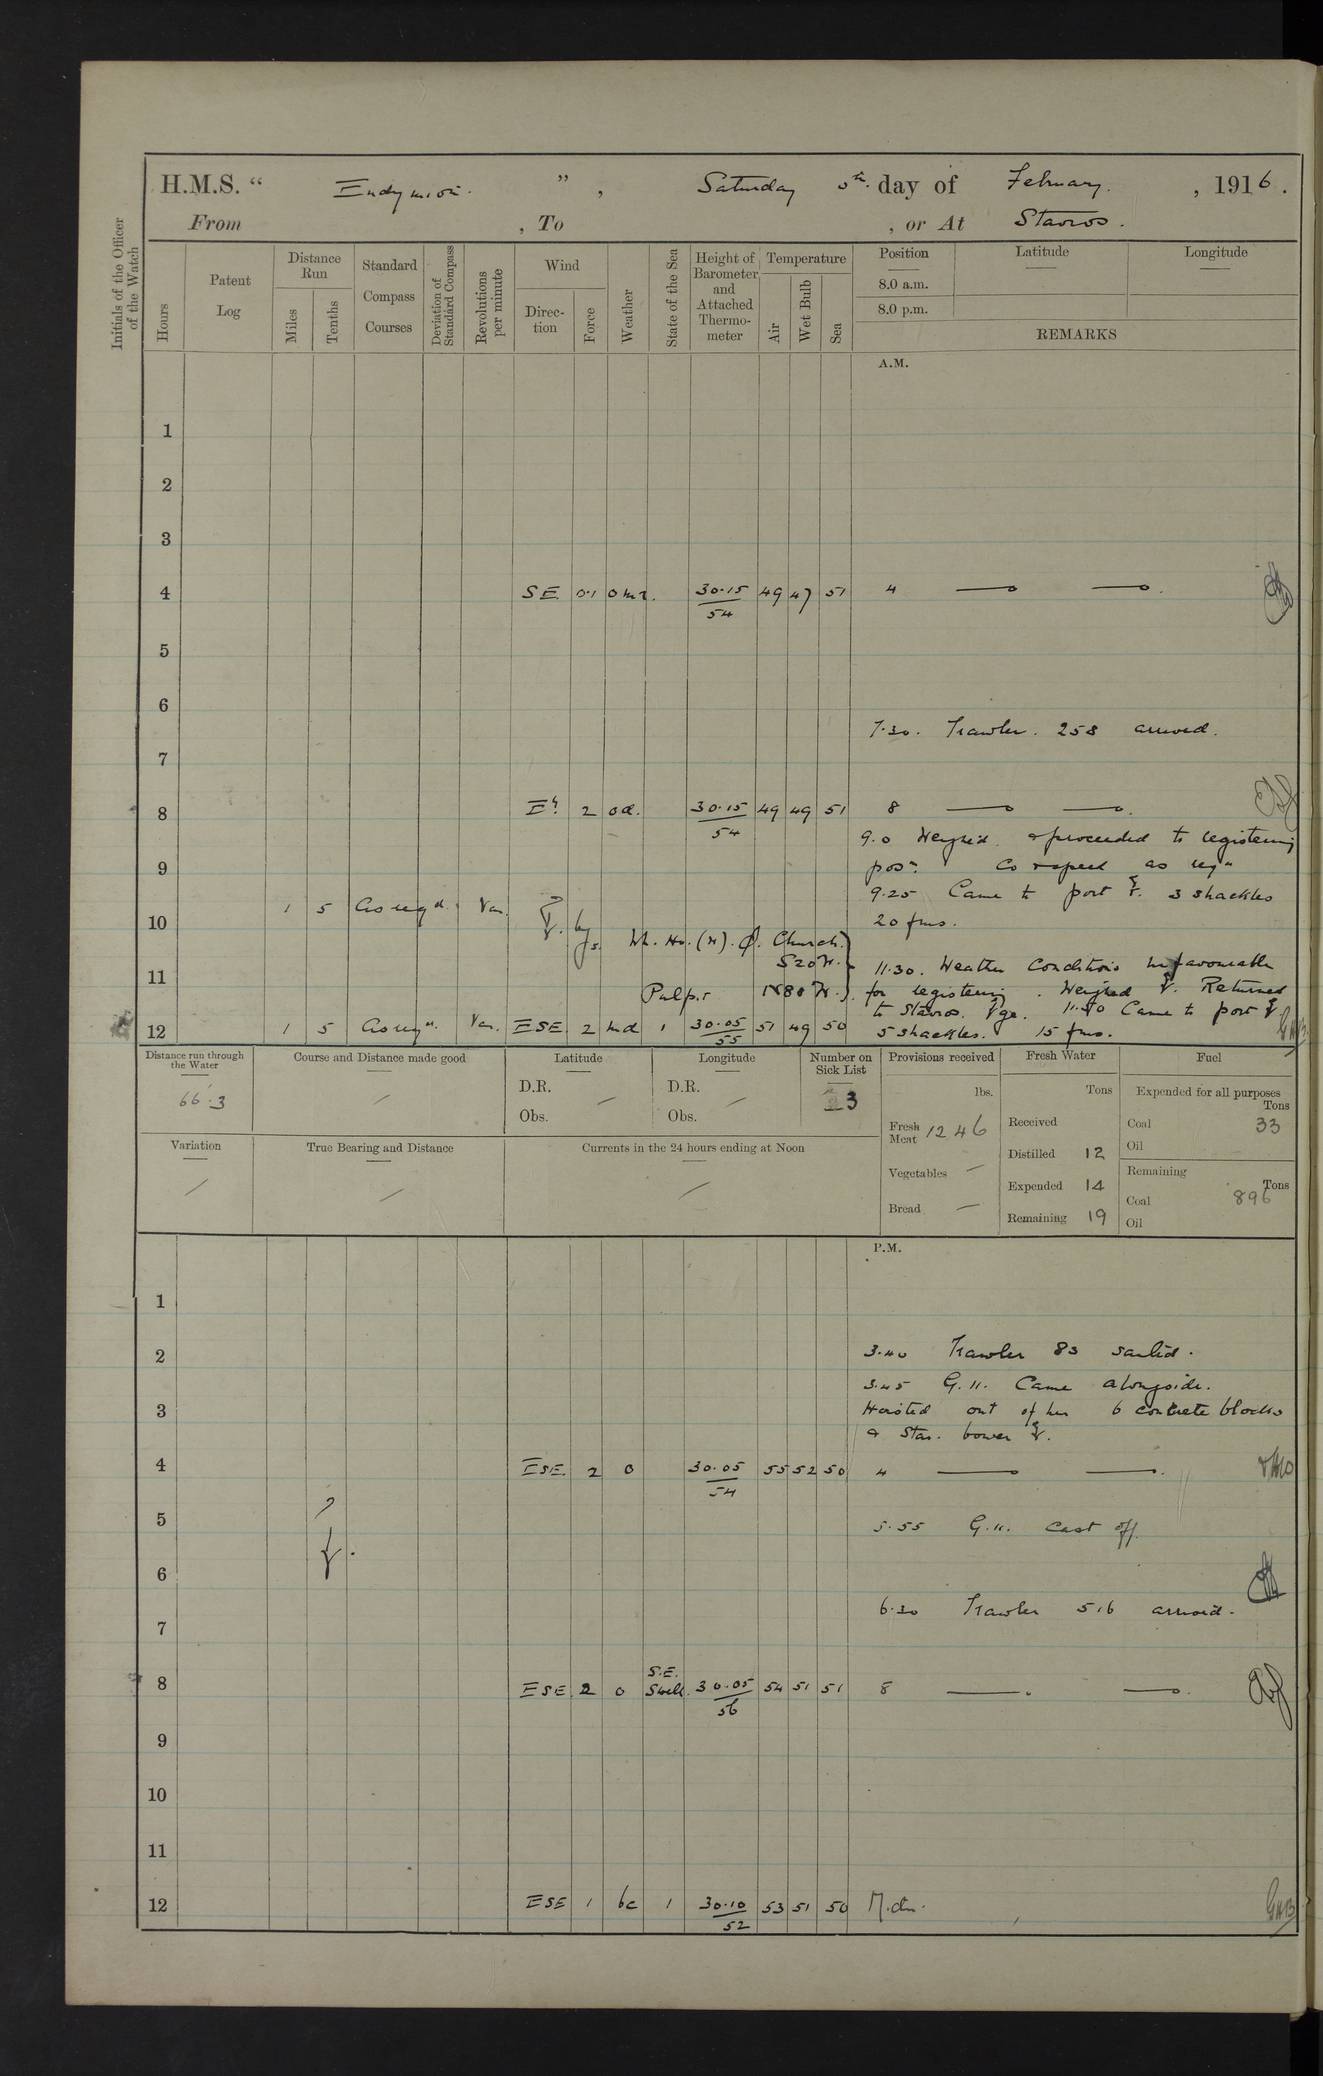 H.M.S. “ Endymion. ” , Saturday 5th. day of February. , 1916 .
From , To , or At Stavros.
Initials of the Officer of the Watch
Hours
Patent Log
Distance Run
Miles
Tenths
Standard Compass Courses
Deviation of Standard Compass
Revolutions per minute
Wind
Direc-tion
Force
Weather
State of the Sea
Height of Barometer and Attached Thermo-meter
Temperature
Air
Wet Bulb
Sea
Position
8.0 a.m.
8.0 p.m.
Latitude
Longitude
REMARKS
A.M.
1
2
3
4 SE. 0.1 omr. 30.15 49 47 51 4
54
5
6
7.30. Trawler. 258 arrived.
7
8 E'ly 2 od. 30.15 49 49 51 8
54
9.0 Weighed. & proceeded to registering
9 posn. Co & speed as reqd
9.25 Came to port 3 shackles
1 5 As reqd. Var.
10 20 fms.
Wh. Ho. (N). Church.
S20W.
11 11.30. Weather conditions unfavourable
Pulpit N80W. for registering. Weighed Returned
to Stavros. 11.50 Came to port
12 1 5 As reqd. Var. ESE 2 md 1 30.05 51 49 50 5 shackles. 15 fms. GHB
55
Distance run through the Water
66.3
Course and Distance made good
Latitude
D.R.
Obs.
Longitude
D.R.
Obs.
Number on Sick List
3
Variation
True Bearing and Distance
Currents in the 24 hours ending at Noon
Provisions received
lbs.
Fresh Meat 1246
Vegetables —
Bread —
Fresh Water
Tons
Received
Distilled 12
Expended 14
Remaining 19
Fuel
Expended for all purposes
Tons
Coal 33
Oil
Remaining
Tons
Coal 896
Oil
P.M.
1
2 3.40 Trawler 83 sailed.
3.45 G.11. Came alongside.
3 Hoisted out of her 6 concrete blocks
& Star. bower
4 ESE. 2 o 30.05 55 52 50 4
54
5 5.55 G.11. Cast off.
6
6.30 Trawler 516 arrived.
7
S.E.
8 ESE 2 o Swell. 30.05 54 51 51 8
56
9
10
11
12 ESE 1 bc 1 30.10 53 51 50 M.dn. GHB
52